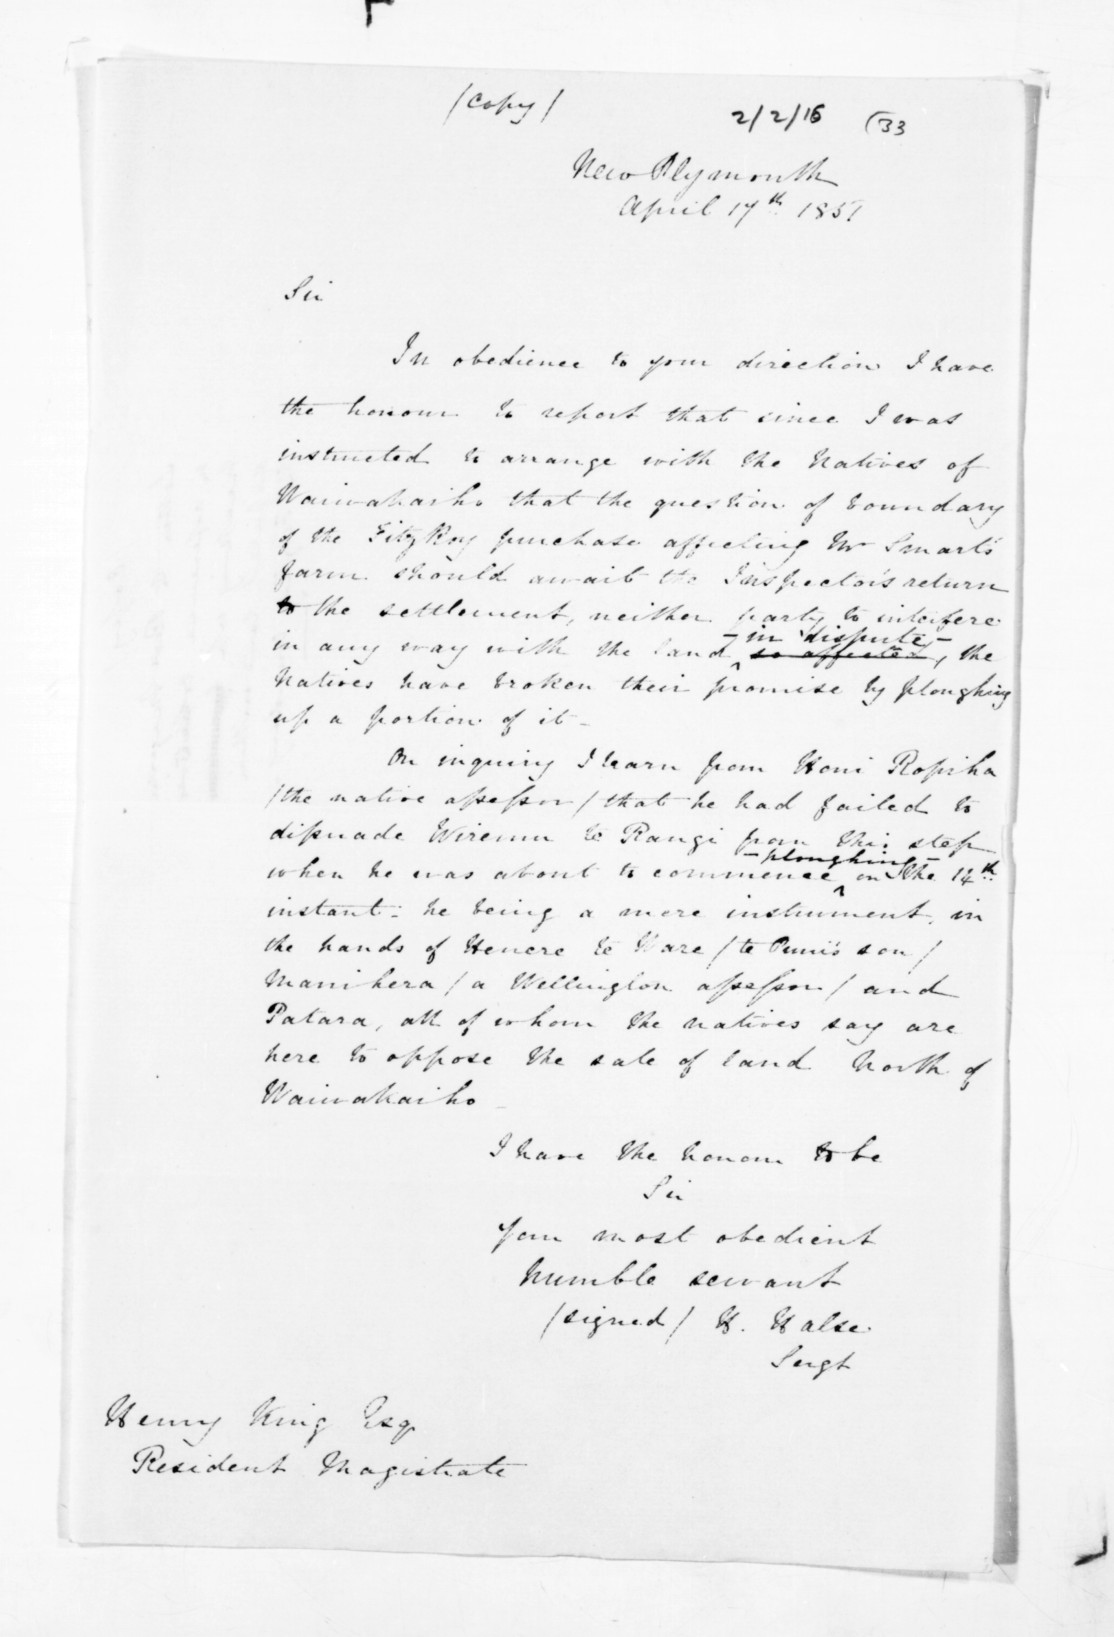 (copy)
2/2/16 (33
New Plymouth
April 17th 1851
Sir
In obedience to your direction I have
the honour to report that since I was
instructed to arrange with the Natives of
Waiwakaiho that the question of boundary
of the FitzRoy purchase affecting Mr Smart's
farm should await the Inspector's return
to the settlement, neither party to interfere
in any way with the land - in dispute - so affected, the
Natives have broken their promise by ploughing
up a portion of it -
On inquiry I learn from Honi Ropiha
/the native assessor/ that he had failed to
dissuade Wiremu te Rangi from this step
when he was about to commence - ploughing - on the 14th
instant: he being a mere instrument in
the hands of Henere te Ware /te Puni's son/
Manihera /a Wellington assessor/ and
Patara, all of whom the natives say are
here to oppose the sale of land North of
Waiwakaiho -
I have the honour to be
Sir
Your most obedient
humble servant
/signed/ H. Halse
Sergt
Henry King Esq.
Resident Magistrate